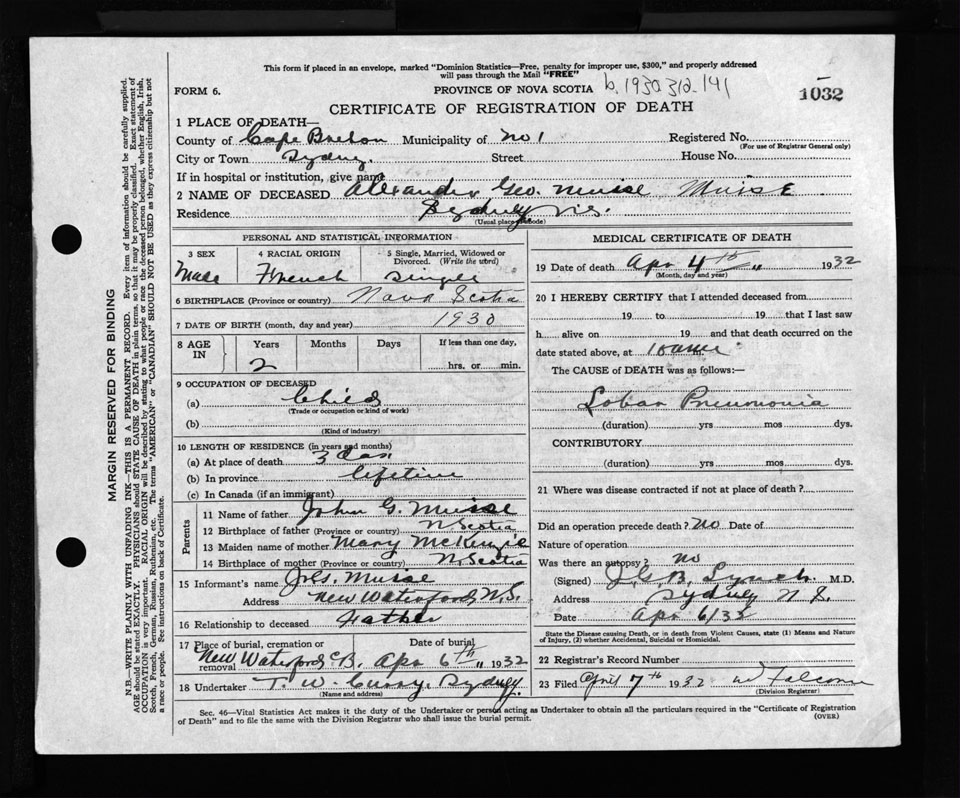 This form if placed in an envelope, marked "Dominion Statistics—Free, penalty for improper use, $300," and properly addressed
will pass through the Mail "FREE"
FORM 6.
PROVINCE OF NOVA SCOTIA
b. 1930 312-141
1032
CERTIFICATE OF REGISTRATION OF DEATH
1 PLACE OF DEATH—
County of Cape Breton Municipality of No 1 Registered No.
(For use of Registrar General only)
City or Town Sydney. Street House No.
If in hospital or institution, give name
2 NAME OF DECEASED Alexander Geo. Muise MUISE
Residence Sydney N.S.
(Usual place of abode)
PERSONAL AND STATISTICAL INFORMATION
3 SEX Male
4 RACIAL ORIGIN French
5 Single, Married, Widowed or Divorced. (Write the word) Single
6 BIRTHPLACE (Province or country) Nova Scotia
7 DATE OF BIRTH (month, day and year) 1930
8 AGE IN Years Months Days If less than one day,
2 hrs. or min.
9 OCCUPATION OF DECEASED
(a) Child
(Trade or occupation or kind of work)
(b)
(Kind of industry)
10 LENGTH OF RESIDENCE (in years and months)
(a) At place of death 3 Das
(b) In province lifetime
(c) In Canada (if an immigrant)
Parents
11 Name of father John G. Muise
12 Birthplace of father (Province or country) N Scotia
13 Maiden name of mother Mary McKenzie
14 Birthplace of mother (Province or country) N. Scotia
15 Informant's name J.G. Muise
Address New Waterford N.S.
16 Relationship to deceased Father
17 Place of burial, cremation or removal New Waterford C.B. Date of burial Apr 6th " 1932
18 Undertaker T. W. Curry, Sydney.
(Name and address)
MEDICAL CERTIFICATE OF DEATH
19 Date of death Apr 4th " 1932
(Month, day and year)
20 I HEREBY CERTIFY that I attended deceased from
19 to 19 that I last saw
h alive on 19 and that death occurred on the
date stated above, at 10 am
The CAUSE of DEATH was as follows:—
Lobar Pneumonia
(duration) yrs mos dys.
CONTRIBUTORY
(duration) yrs mos dys.
21 Where was disease contracted if not at place of death?
Did an operation precede death? No Date of
Nature of operation
Was there an autopsy? no
(Signed) J.G.B. Lynch. M.D.
Address Sydney N S.
Date Apr 6/32
State the Disease causing Death, or in death from Violent Causes, state (1) Means and Nature of Injury, (2) whether Accidental, Suicidal or Homicidal.
22 Registrar's Record Number
23 Filed April 7th 1932
(Division Registrar)
Sec. 46—Vital Statistics Act makes it the duty of the Undertaker or person acting as Undertaker to obtain all the particulars required in the "Certificate of Registration
of Death" and to file the same with the Division Registrar who shall issue the burial permit.
(OVER)
MARGIN RESERVED FOR BINDING
N.B.—WRITE PLAINLY WITH UNFADING INK—THIS IS A PERMANENT RECORD. Every item of information should be carefully supplied.
AGE should be stated EXACTLY. PHYSICIANS should STATE CAUSE OF DEATH in plain terms, so that it may be properly classified. Exact statement of
OCCUPATION is very important. RACIAL ORIGIN will be described by stating to what people or race the deceased person belonged, whether English, Irish,
Scotch, French, German, Russian, Ruthenian, etc. The terms "AMERICAN" or "CANADIAN" SHOULD NOT BE USED as they express citizenship but not
a race or people. See instructions on back of Certificate.